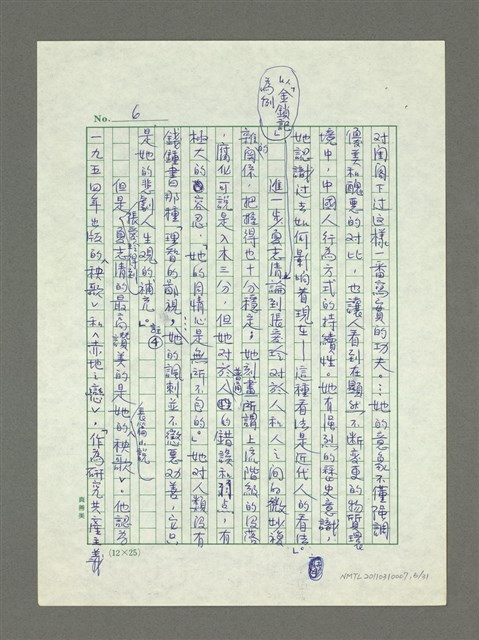 No. 6
對閨閣下过這樣一番寫實的功夫。…她的意象不僅強調
優美和醜惡的对比，也讓人看到在顯然不断变更的物質環
境中，中國人行為方式的持續性。她有強烈的歷史意識，
她認識过去如何影响着現在——這種看法是近代人的看法」。
以「金鎖記」為例
進一步夏志清論到張愛玲对於人和人之间的微妙複
雜的関係，把握得也十分穩定；她刻畫普通所謂上流階級的沒落
，腐化可說是入木三分，但她对於人的錯誤和弱点，有
極大的容忍，「她的同情心是無所不包的。」她对人類沒有
錢鍾書的那種理智的鄙視，…「她的諷刺並不懲惡劝善，它只
是她的悲劇人生观的補充」。註④
但是，張愛玲得到夏志清的最高讚美的是她的長篇小說《秧歌》。他認为
一九五四年出版的《秧歌》和《赤地之戀》，「作為研究共產主義
(12×25)
NMTL20110310007.6/31